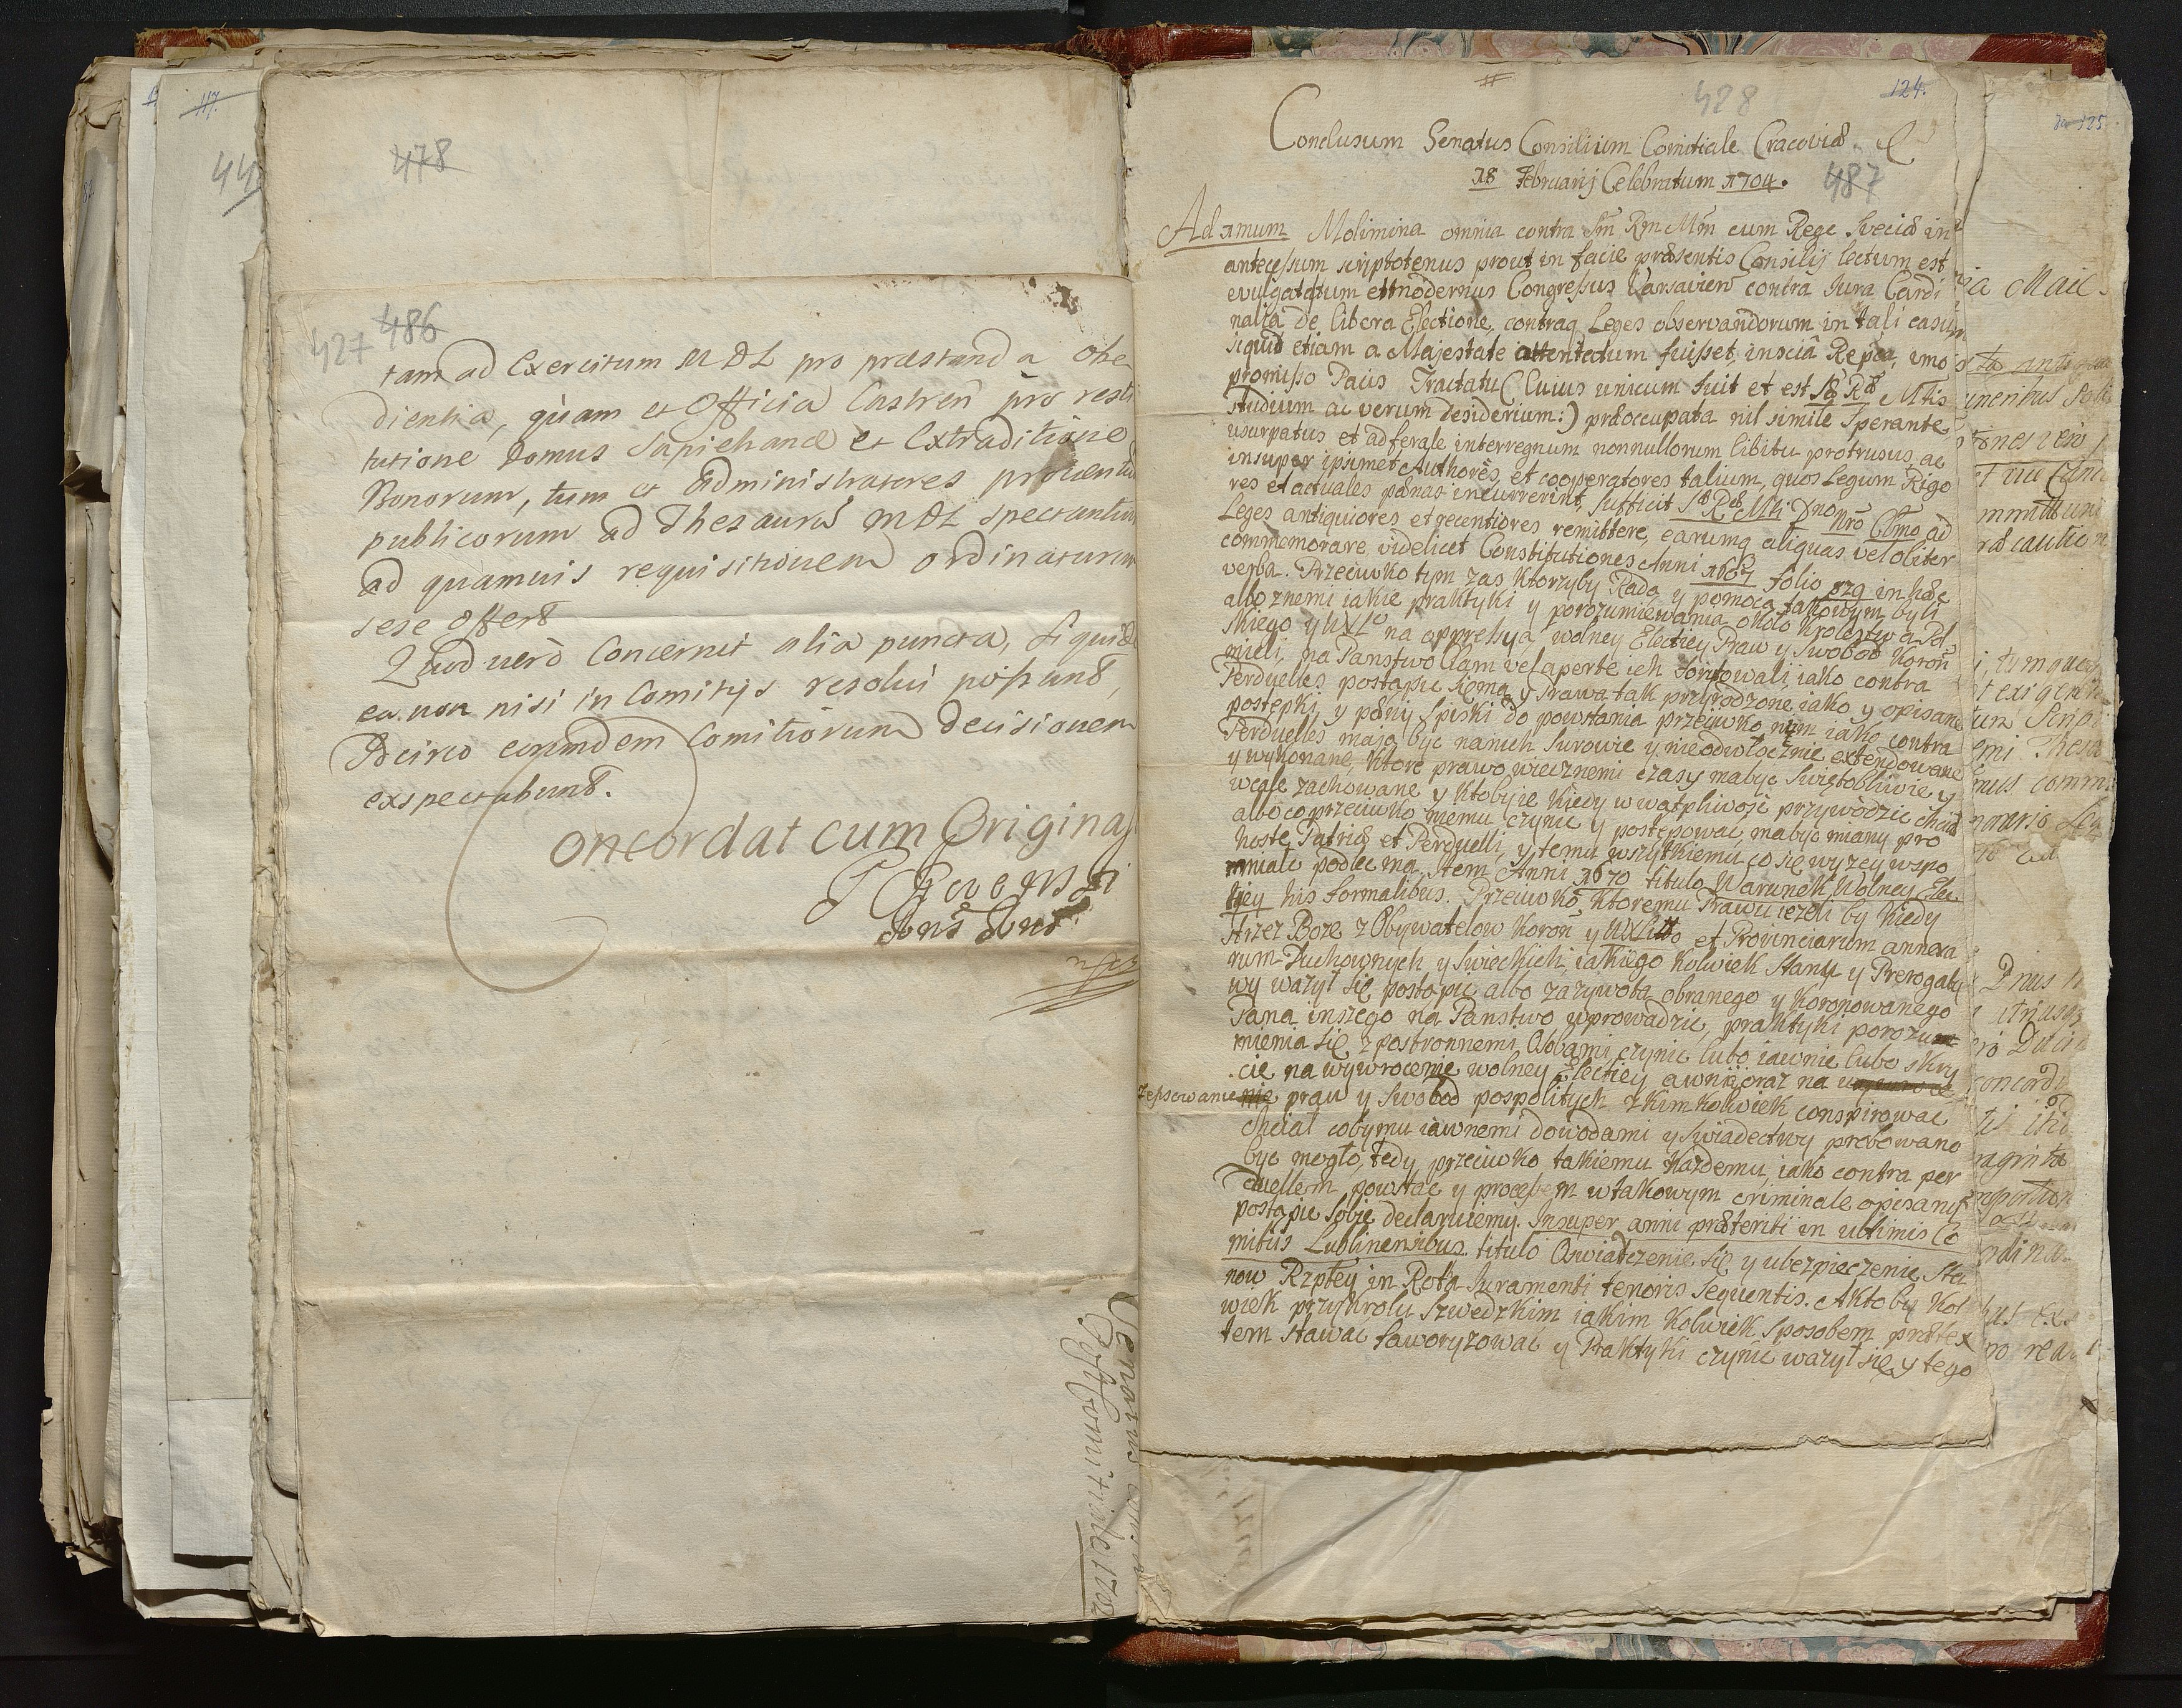 478
427 486
tam ad Exercitum MDL pro præstanda obe
dientia, quam et Officia Castren pro resti
tutione Domus Sapiehanæ et Extraditione
Bonorum, tum et administratores provent
publicorum ad Thesaurū MDL spectantium
ad quamuis requisitionem ordinaturum
sese offert
Quod verò Concernit alia puncta, siquid
ea non nisi in Comitijs resolui possunt,
Ideirco eorundem Comitiorum Decisionem
exspectabunt.
Concordat cum Originali
428 124.
Conclusum Senatus Consilium Comitiale Cracoviæ
18 Februarij Celebratum 1704. 487
Ad 1mum Molimina omnia contra Sm̄ Rm̄ Mm̄ cum Rege Sveciæ in
antecessum scriptotenus prout in facie præsentis Consilij lectum est
evulgatatum et modernus Congressus Varsavien contra Jura Cardi
nalia de libera Electione, contraq Leges observandorum in tali casu
siquid etiam a Majestate attentatum fuisset, inscia Repca, imo
promisso Pacis Tractatu (Cuius unicum fuit et est Sæ Ræ Mtis
studium ac verum desiderium:) præoccupata nil simile Sperante,
usurpatus et ad ferale interregnum nonnullorum libitu protrusus, ac
insuper ipsimet Authores, et cooperatores talium, quos Legum Rigo
res et actuales pœnas incurrerint, sufficit Sæ Ræ Mti Dno Nrō Clmo ad
Leges antiquiores et recentiores remittere, earumq aliquas vel obiter
commemorare, videlicet Constitutiones Anni 1667 folio 929 in hæc
verba. Przeciwko tym zas ktorzyby Radą y pomocą takowym byli
albo znemi iakie praktyki y porozumiewania około Krolestwa Pol
skiego y WXLo na oppressyą wolney Electiey Praw y Swobod Koron
mieli, na Panstwo Clam vel aperte ich forytowali, iako contra
Perduelles postąpic się ma, y Prawa tak przyrodzone, iako y opisane
postępki, y pœny Spiski do powstania przeciwko nim iako contra
Perduelles maią byc nanich surowie y nieodwłocznie extendowane
y wykonane, ktore prawo wiecznemi czasy ma byc swiętobliwie y
wcale zachowane y ktobyie kiedy w wątpliwosc przywodzic chciał
albo co przeciwko niemu czynic y postępowac, ma byc miany pro
hoste Patriæ et Perduelli, y temu wszytkiemu co się wyzey wspo
mniało podlec ma. Item Anni 1670 titulo Warunek Wolney Elec
tiey his formalibus. Przeciwko ktoremu Prawu iezeli by kiedy
strzez Boze z Obywatelow Koron y WXLitto et Provinciarum annexa
rum Duchownych y Swieckich, iakiego kolwiek Stanu y Prerogaty
wy wazył się postąpic albo za zywota obranego y Koronowanego
Pana inszego na Panstwo wprowadzic, praktyki porozu
mienia się z postronnemi Osobami czynic lubo iawnie lubo skry
cie na wywrocenie wolney Electiey, a wnię oraz na
zepsowanie praw y Swobod pospolitych z kimkolwiek conspirowac
chciał cobymu iawnemi dowodami y swiadectwy probowano
byc mogło, tedy przeciwko takiemu kazdemu, iako contra per
duellem powstac y processem w takowym criminale opisanym
postąpic sobie declaruiemy. Insuper anni præteriti in ultimis Co
mitiis Lublinensibus titulo Oswiadczenie się y ubezpieczenie Sta
now Rzptey in Rota Juramenti tenoris sequentis. A kto by kol
wiek przy krolu Szwedzkim iakim kolwiek sposobem prætex
tem stawac faworyzowac y Praktyki czynic wazył się, y tego